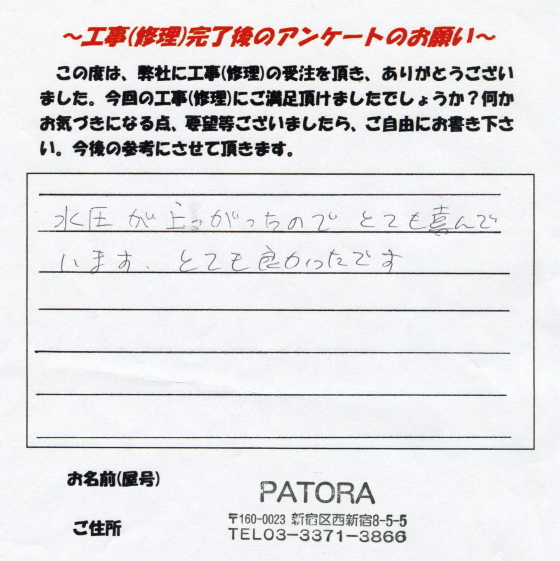 ～工事(修理)完了後のアンケートのお願い～
この度は、弊社に工事(修理)の受注を頂き、ありがとうござい
ました。今回の工事(修理)にご満足頂けましたでしょうか？何か
お気づきになる点、要望等ございましたら、ご自由にお書き下さ
い。今後の参考にさせて頂きます。
水圧が上がったのでとても喜んで
います、とても良かったです
お名前(屋号)
PATORA
ご住所
〒160-0023 新宿区西新宿8-5-5
TEL03-3371-3866